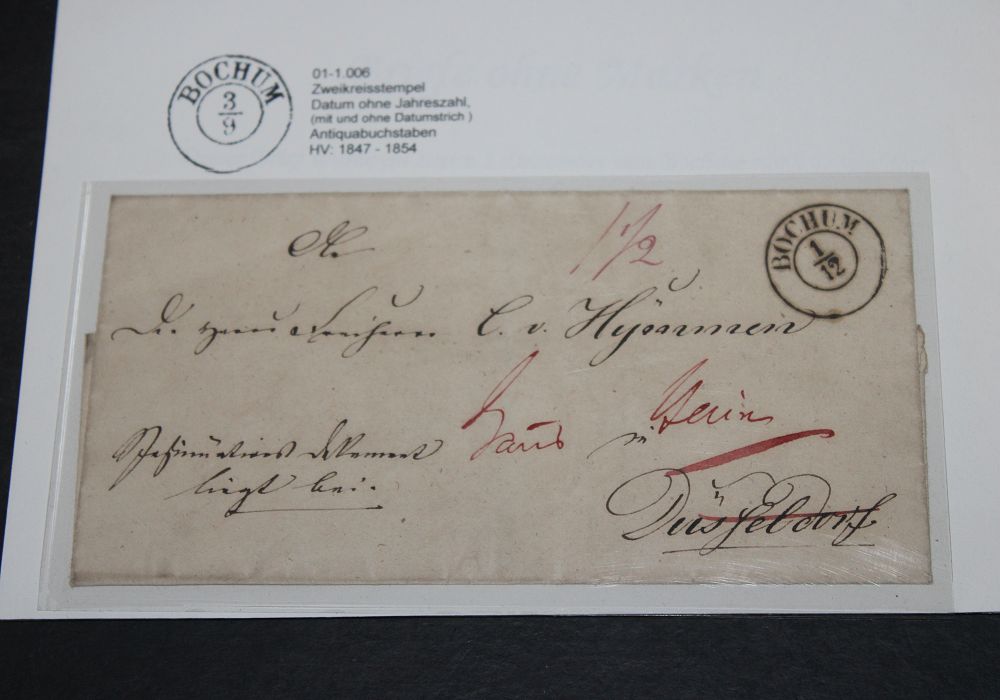 BOCHUM
3
9
01-1.006
Zweikreisstempel
Datum ohne Jahreszahl,
(mit und ohne Datumstrich )
Antiquabuchstaben
HV: 1847 - 1854
1 1/2
BOCHUM
1/12
Freiherrn C. v. Hymmen
Haus in
Insinuations Dokument
liegt bei.
Düsseldorf